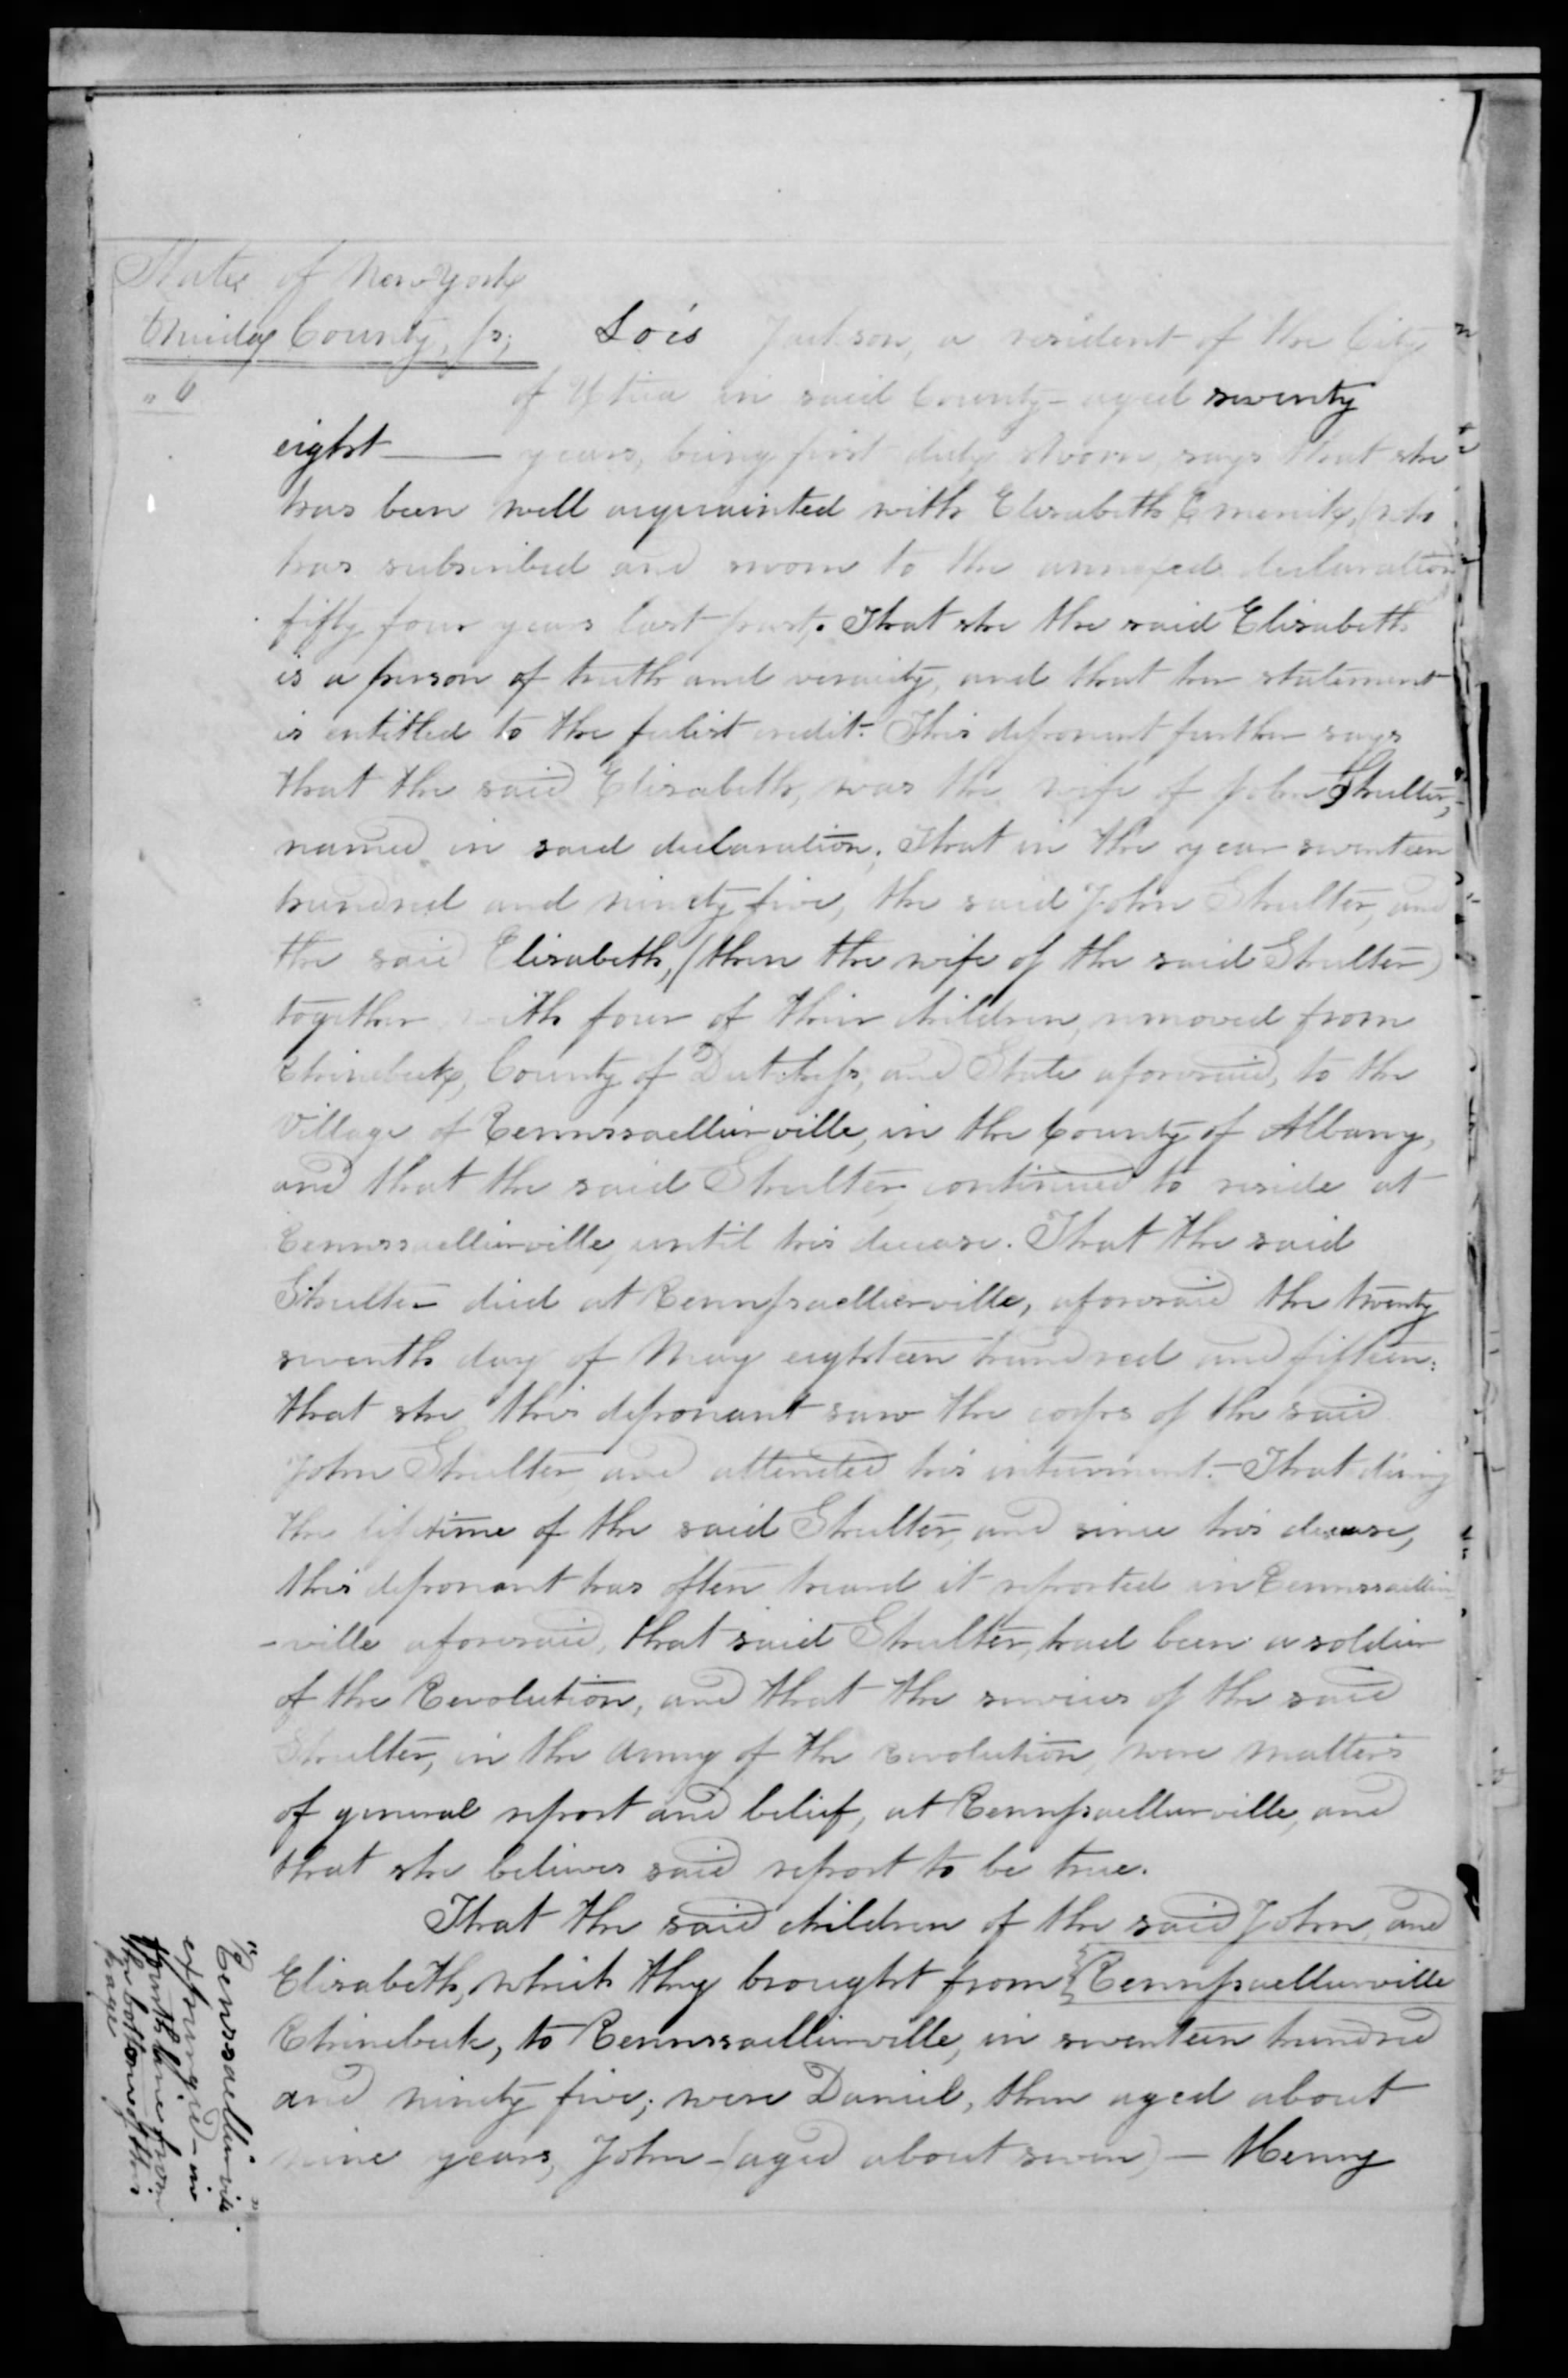 State of New York
Oneida County, ss; Lois Jackson, a resident of the City
of Utica in said County - aged seventy
eight — years, being first duly sworn, says that she
has been well acquainted with Elisabeth, (who
has subscribed and sworn to the annexed declaration
fifty four years last past. That she the said Elisabeth
is a person of truth and veracity, and that her statement
is entitled to the fulist credit. This deponent further says
that the said Elisabeth, was the wife of John Shulter,
named in said declaration; That in the year seventeen
hundred and ninety five, the said John Shulter, and
the said Elisabeth, (then the wife of the said Shulter)
together with four of their children, removed from
Rhinebeck, County of Dutchess, and State aforesaid, to the
Village of Rennssaellierville, in the County of Albany,
and that the said Shulter, continued to reside at
Rennssaellierville, until his decease. That the said
Shulter died at Rennssaellierville, aforesaid the twenty
seventh day of May eighteen hundred and fifteen:
that she this deponant saw the corps of the said
John Shulter, and attended his interment. - That during
the lifetime of the said Shulter, and since his decease,
this deponant has often heard it reported in Rennssaellier
-ville aforesaid, that said Shulter, had been a soldier
of the Revolution, and that the services of the said
Shulter, in the Army of the Revolution, were matters
of general report and belief, at Rennssaellierville, and
that she believes said report to be true.
That the said children of the said John, and
Elisabeth, which they brought from Rennssaellierville
Rhinebeck, to Rennssaellierville, in seventeen hundred
and ninety five; were Daniel, then aged about
nine years, John - (aged about seven) - Henry
"Rennssaellierville"
expunged - in
fourth line from
the bottom of this
page